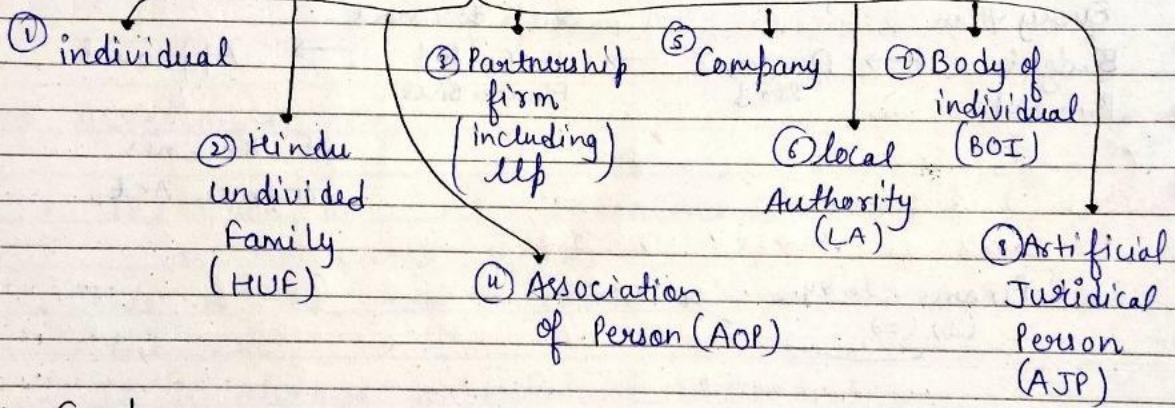 ① individual
② Hindu
undivided
Family
(HUF)
③ Partnership
firm
(including
llp)
④ Association
of Person (AOP)
⑤ Company
⑥ local
Authority
(LA)
⑦ Body of
individual
(BOI)
⑧ Artificial
Juridical
Person
(AJP)